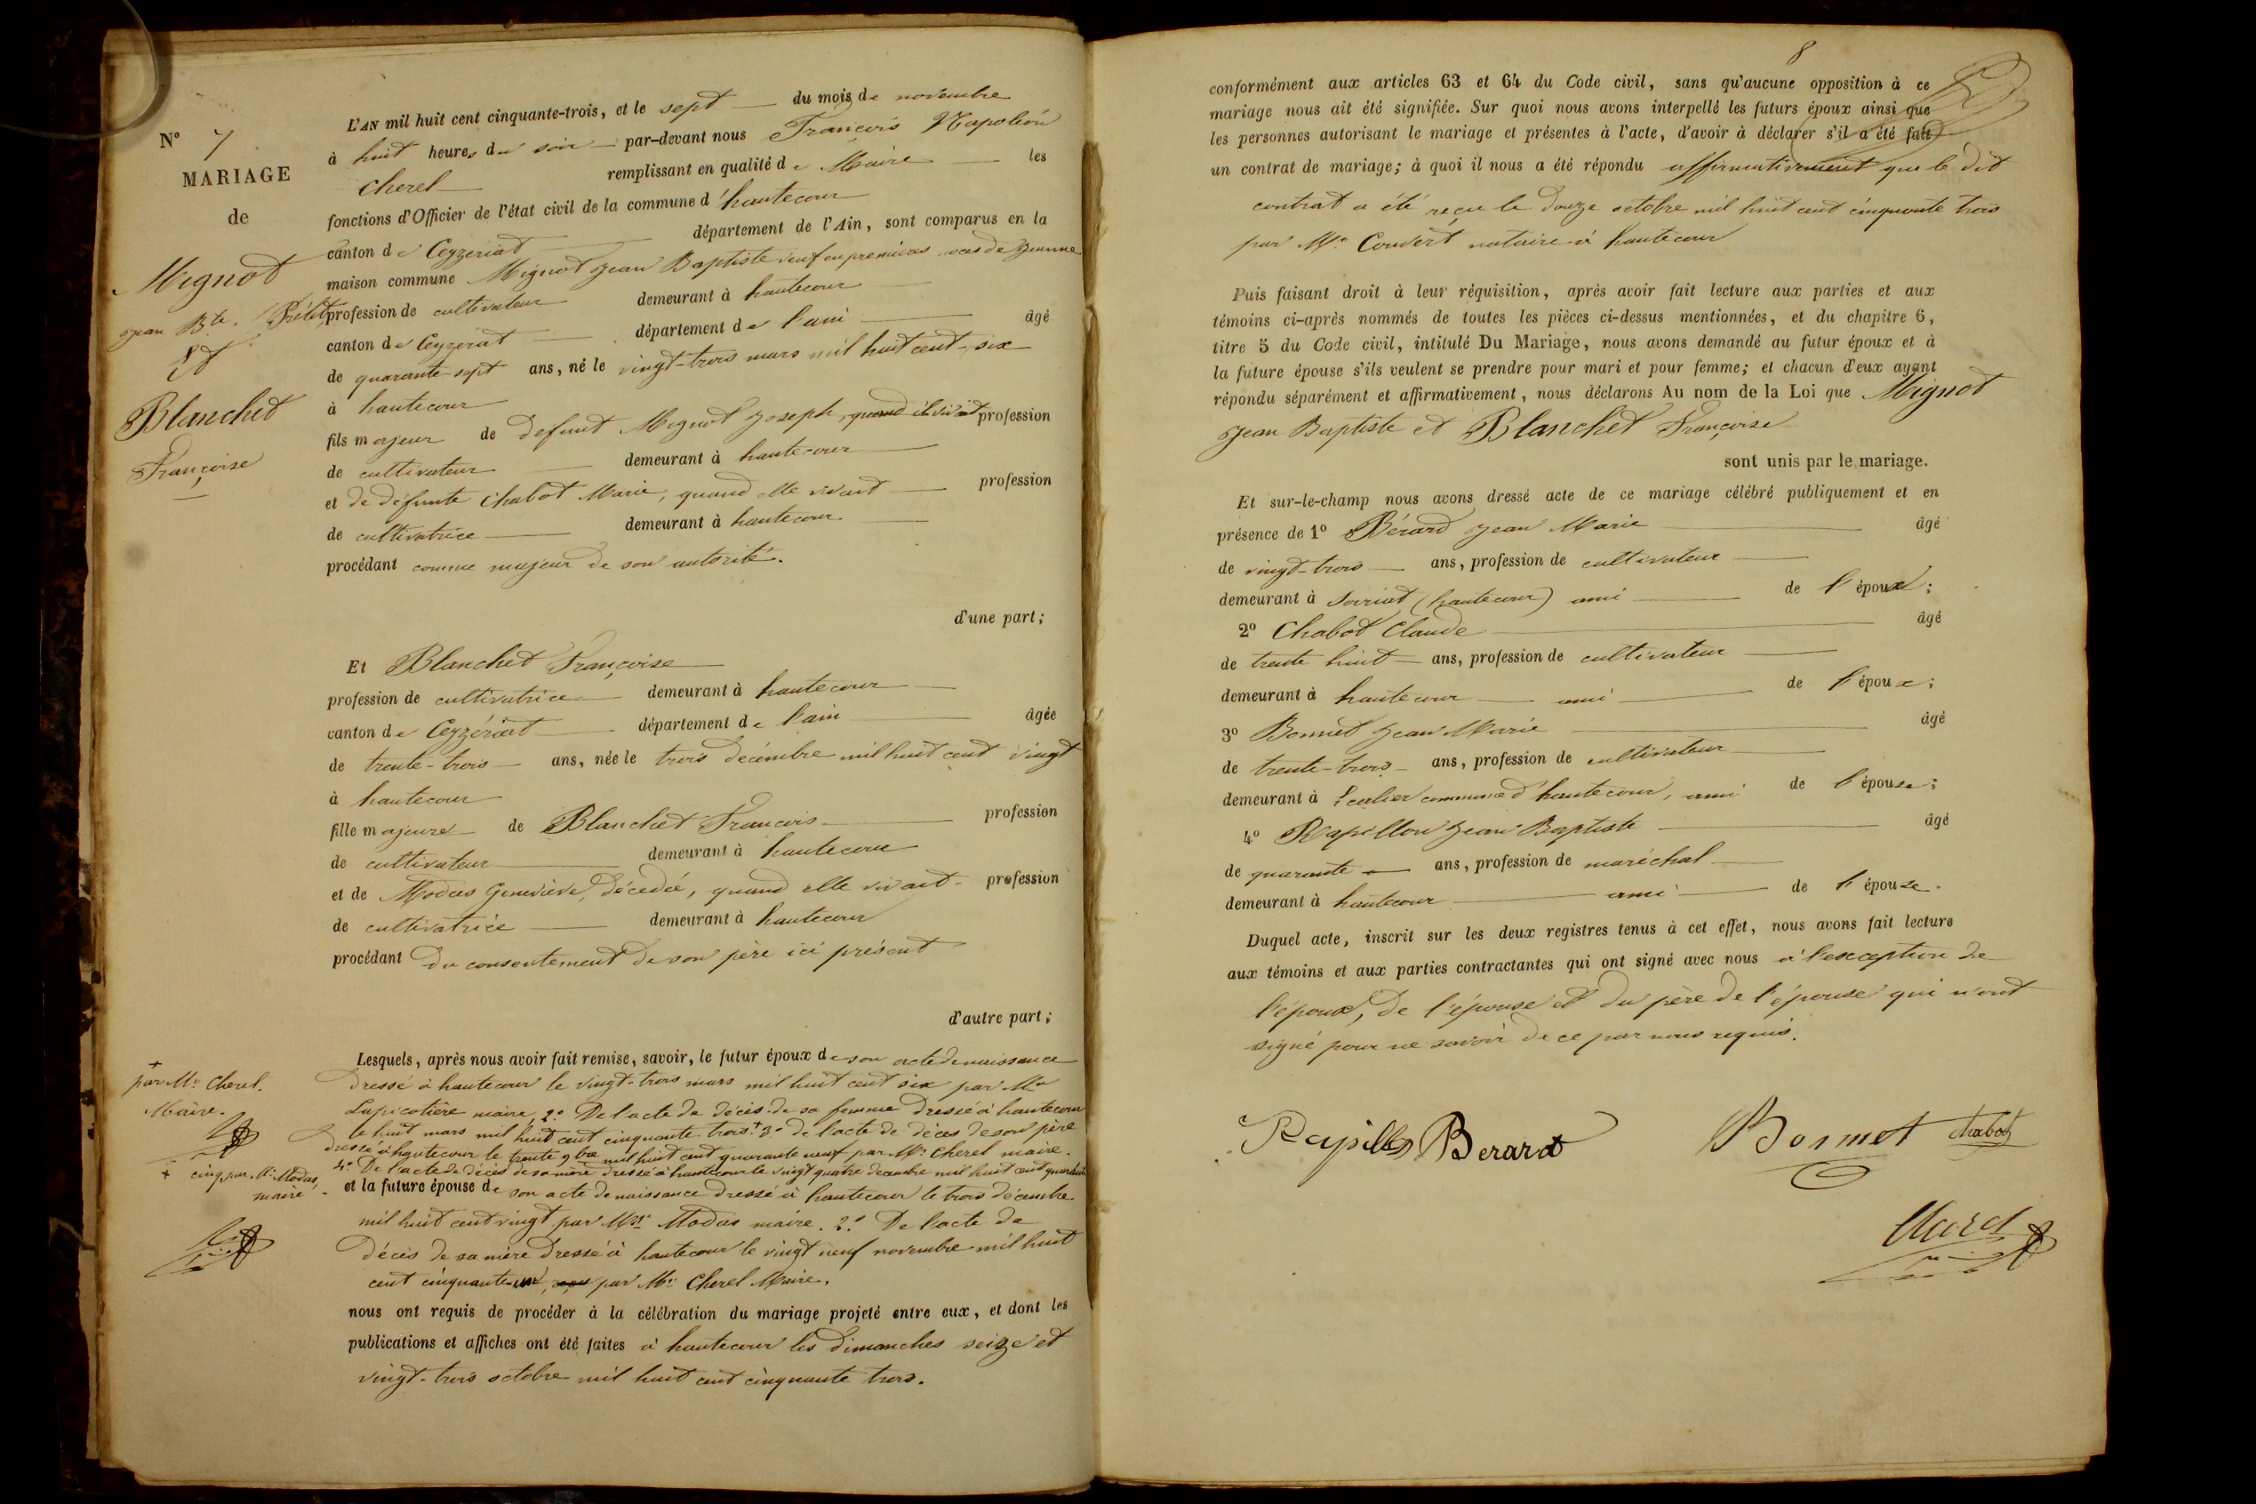 N° 7
MARIAGE
de
Mignot
Jean Bte.
Et
Blanchet
Françoise
L'AN mil huit cent cinquante-trois, et le sept du mois de novembre
à huit heures du soir par-devant nous François Napoléon
Cherel remplissant en qualité de Maire les
fonctions d'Officier de l'état civil de la commune d'hautecour
canton de Ceyzeriat département de l'Ain, sont comparus en la
maison commune Mignot Jean Baptiste veuf en premières noces de Jeanne
Prélit, profession de cultivateur demeurant à hautecour
canton de Ceyzeriat département de l'ain âgé
de quarante-sept ans, né le vingt-trois mars mil huit cent-six
à hautecour
fils majeur de defunt Mignot Joseph, quand il vivait profession
de cultivateur demeurant à hautecour
et de défunte Chabot Marie, quand elle vivait profession
de cultivatrice demeurant à hautecour
procédant comme majeur de son autorité.
d'une part;
Et Blanchet Françoise
profession de cultivatrice demeurant à hautecour
canton de Ceyzériat département de l'ain âgée
de trente-trois ans, née le trois décembre mil huit cent vingt
à hautecour
fille majeure de Blanchet François profession
de cultivateur demeurant à hautecour
et de Modas Geneviève, décedée, quand elle vivait profession
de cultivatrice demeurant à hautecour
procédant du consentement de son père ici présent
d'autre part;
Lesquels, après nous avoir fait remise, savoir, le futur époux de son acte de naissance
dressé à hautecour le vingt-trois mars mil huit cent six par Mr
Lapicotière maire, 2° De l'acte de décès de sa femme dressé à hautecour
le huit mars mil huit cent cinquante-trois + 3° de l'acte de décès de son père
dressé à hautecour le trente 9bre mil huit cent quarante neuf par Mr Cherel maire.
4° De l'acte de décès de sa mère dressé à hautecour le vingt quatre décembre mil huit cent quarante
+
par Mr Cherel.
Maire.
+ cinq par Mr Modas,
maire
et la future épouse de son acte de naissance dressé à hautecour le trois décembre
mil huit cent vingt par Mr Modas maire. 2° De l'acte de
décès de sa mère dressé à hautecour le vingt neuf novembre mil huit
cent cinquante-un, par Mr Cherel Maire.
nous ont requis de procéder à la célébration du mariage projeté entre eux, et dont les
publications et affiches ont été faites à hautecour les dimanches seize et
vingt-trois octobre mil huit cent cinquante trois.
8
conformément aux articles 63 et 64 du Code civil, sans qu'aucune opposition à ce
mariage nous ait été signifiée. Sur quoi nous avons interpellé les futurs époux ainsi que
les personnes autorisant le mariage et présentes à l'acte, d'avoir à déclarer s'il a été fait
un contrat de mariage; à quoi il nous a été répondu affirmativement que le dit
contrat a été reçu le douze octobre mil huit cent cinquante trois
par Me Convert notaire à hautecour
Puis faisant droit à leur réquisition, après avoir fait lecture aux parties et aux
témoins ci-après nommés de toutes les pièces ci-dessus mentionnées, et du chapitre 6,
titre 5 du Code civil, intitulé Du Mariage, nous avons demandé au futur époux et à
la future épouse s'ils veulent se prendre pour mari et pour femme; et chacun d'eux ayant
répondu séparément et affirmativement, nous déclarons Au nom de la Loi que Mignot
Jean Baptiste et Blanchet Françoise
sont unis par le mariage.
Et sur-le-champ nous avons dressé acte de ce mariage célébré publiquement et en
présence de 1° Bérard Jean Marie âgé
de vingt-trois ans, profession de cultivateur
demeurant à Soiriat (hautecour) ami de l'époux;
2° Chabot Claude âgé
de trente huit ans, profession de cultivateur
demeurant à hautecour ami de l'époux;
3° Bonnet Jean Marie âgé
de trente-trois ans, profession de cultivateur
demeurant à commune d'hautecour, ami de l'épouse;
4° Rapillon Jean Baptiste âgé
de quarante ans, profession de maréchal
demeurant à hautecour ami de l'épouse.
Duquel acte, inscrit sur les deux registres tenus à cet effet, nous avons fait lecture
aux témoins et aux parties contractantes qui ont signé avec nous à l'exception de
l'époux, de l'épouse et du père de l'épouse qui n'ont
signé pour ne savoir de ce par nous requis.
Berard Bonnet Chabot